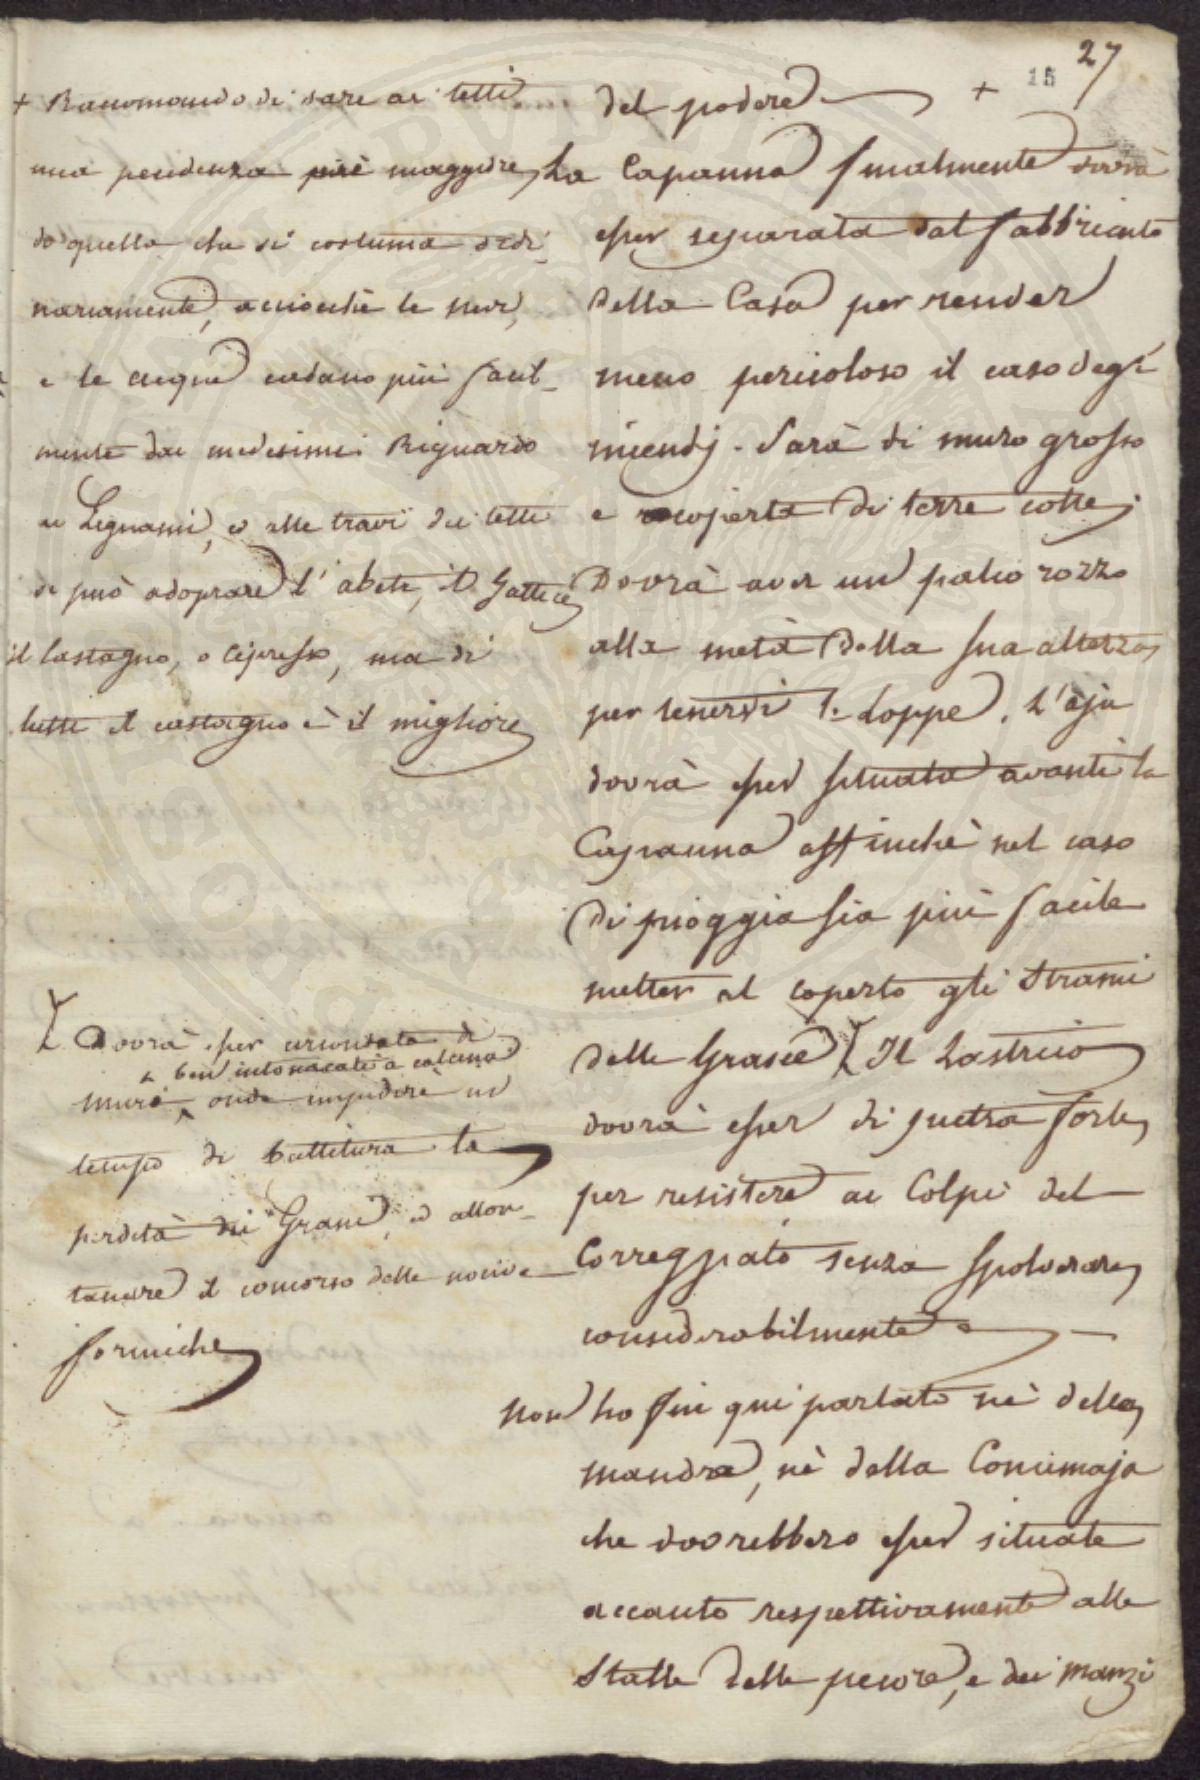 27
15
+ Raccomando di fare ai tetti
una pendenza più maggiore,
di quella che si costuma ordi-
nariamente, acciocchè le nevi,
e le acque cadano più facil-
mente dai medesimi. Riguardo
ai Legnami, o alle travi dei tetti
si può adoprare l'abete, il Gattice
il Castagno, o Cipresso, ma di
tutti il castagno è il migliore
Dovrà esser circondata di
ben intonacati a calcina
muri, onde impedire in
tempo di battitura la
perdita dei Grani, ed allon-
tanare il concorso delle nocive
formiche
del podere +
La Capanna finalmente dovrà
esser separata dal fabbricato
della Casa per render
meno pericoloso il caso degl'
incendj. Sarà di muro grosso
e ricoperta di terre cotte;
Dovrà aver un palco rozzo
alla metà della sua altezza,
per tenervi le Loppe. L'aja
dovrà esser situata avanti la
Capanna affinchè nel caso
di pioggia sia più facile
metter al coperto gli Strami
delle Grasce. Il Lastrico
dovrà esser di pietra forte,
per resistere ai Colpi del
Correggiato senza spolverare,
considerabilmente
Non ho fin qui parlato nè della
mandra, nè della Concimaja
che dovrebbero esser situate
accanto respettivamente alle
Stalle delle pecore, e dei manzi